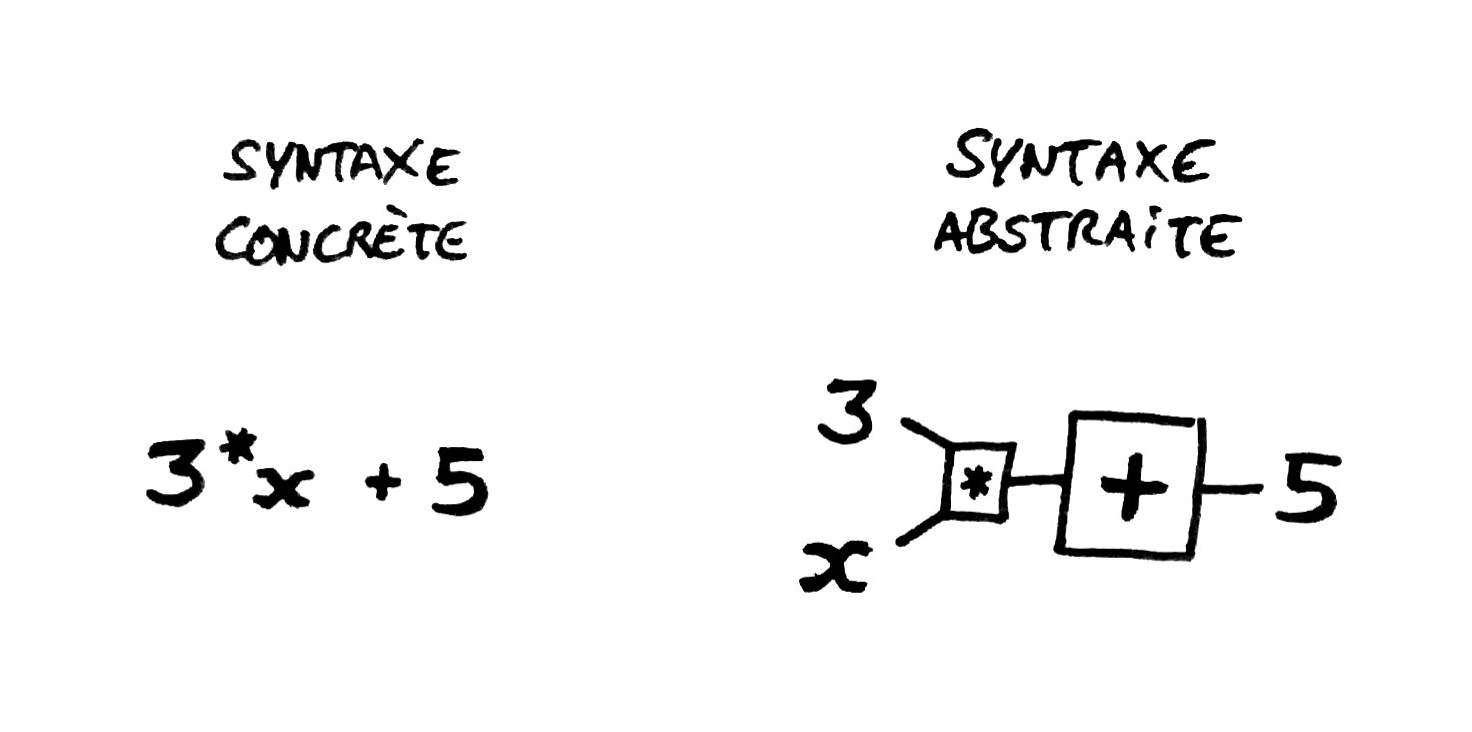 SYNTAXE
CONCRÈTE
3*x + 5
SYNTAXE
ABSTRAiTE
3
*
+
5
x